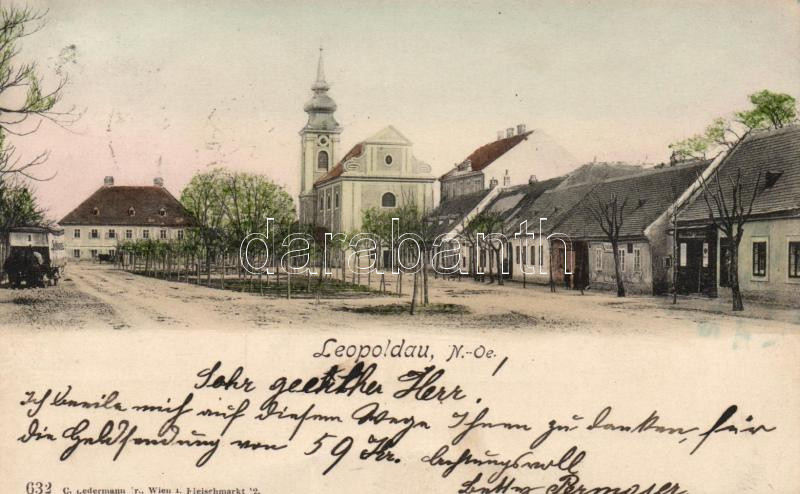 darabanth.com
Leopoldau, N.-Oe.
Sehr geehrter Herr!
Ich beeile mich auf diesem Wege Ihnen zu danken, für
die Geldsendung von 59 Kr. Achtungsvoll
632 C. Ledermann jr., Wien I. Fleischmarkt 12.